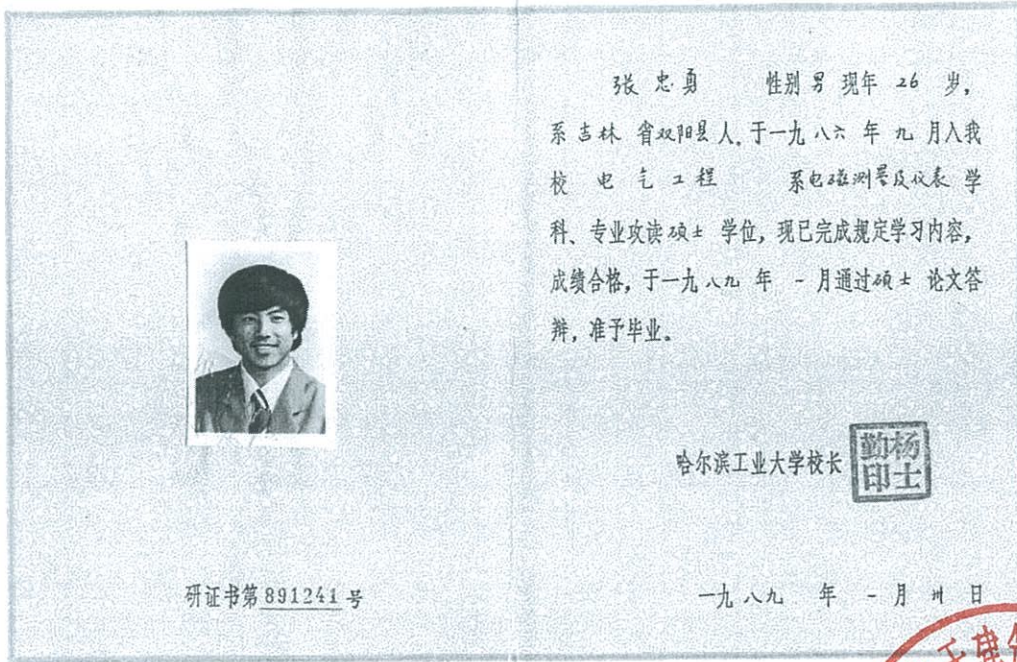 张忠勇 性别男 现年 26 岁,
系吉林 省双阳县人. 于一九八六 年 九 月入我
校 电气工程 系电磁测量及仪表 学
科、专业攻读硕士 学位, 现已完成规定学习内容,
成绩合格, 于一九八九 年 一月通过硕士 论文答
辩, 准予毕业。
哈尔滨工业大学校长
杨士勤印
研证书第891241号
一九八九 年 一月 卅 日